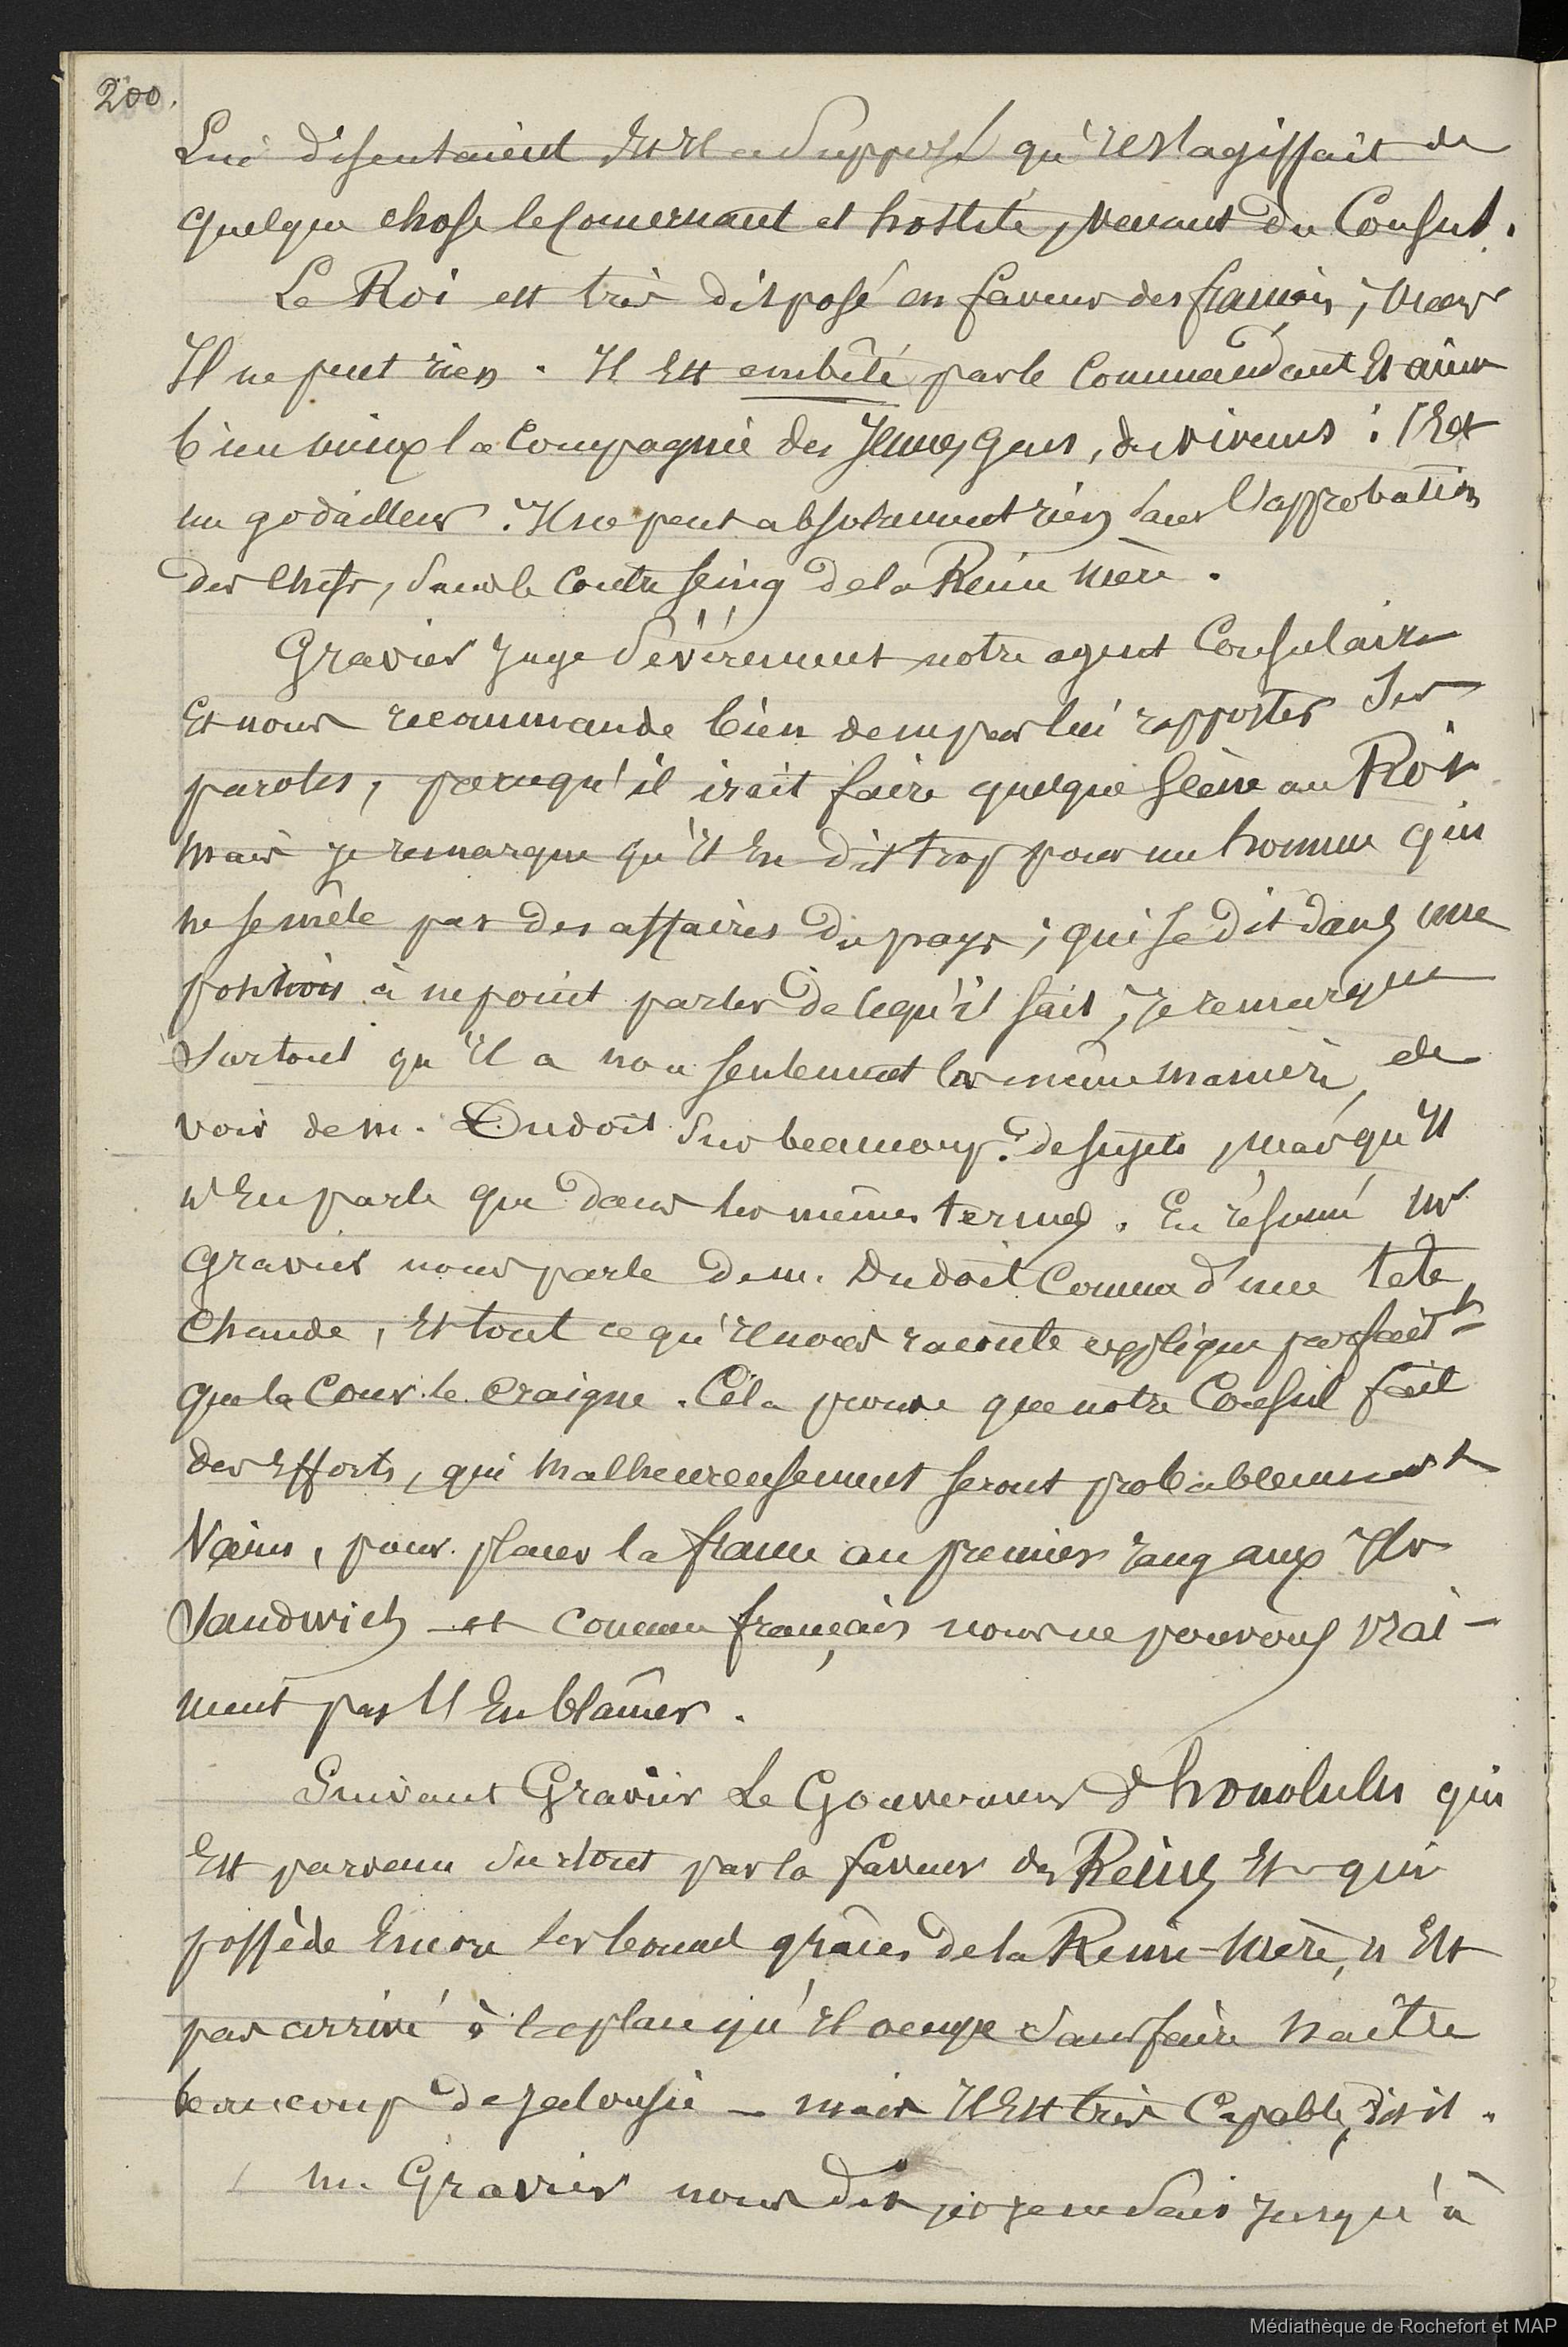 200.
Lui disentaient Et Il a Supposé qu'il s'agissait de
quelque chose le Concernant et hostile, venant du Consul.
Le Roi est très disposé en faveur des français ; mais
Il ne peut rien. Il Est embêté par le Commandant Et aime
bien mieux la Compagnie des Jeunes gens, des viveurs : c'Est
un godailleur. Il ne peut absolument rien sans l'approbation
des Chefs, Sans le Contre seing de la Reine mère.
Gravier Juge Sévèrement notre agent Consulaire
Et nous recommande bien de ne pas lui rapporter Ses
paroles, parcequ'il irait faire quelque scène au Roi.
Mais je remarque qu'Il En dit trop pour un homme qui
ne se mêle pas des affaires du pays ; qui se dit dans une
position à ne point parler de ce qu'il sait, Je remarque
Surtout qu'Il a non seulement la même manière, de
voir de m. Dudoit Sur beaucoup de sujets, mais qu'Il
n'En parle que dans les mêmes termes. En résumé Mr
Gravier nous parle de m. Dudoit Comme d'une tete
chaude, Et tout ce qu'Il nous raconte explique parfait.t
que la Cour le Craigne. Cela prouve que notre Consul fait
des Efforts, qui malheureusement seront probablement
Vains, pour placer la france au premier rang aux Iles
Sandwich - et comme français nous ne pouvons vrai-
ment pas l'En blâmer.
Suivant Gravier Le Gouverneur d'honolulu qui
Est parvenu Surtout par la faveur des Reines Et qui
possède Encore les bonnes grâces de la Reine-Mère, n'Est
pas arrivé à la place qu'Il occupe Sans faire naître
beaucoup de Jalousie - mais Il Est très Capable, dit-il.
m. Gravier nous dit je ne Sais Jusqu'à
Médiathèque de Rochefort et MAP